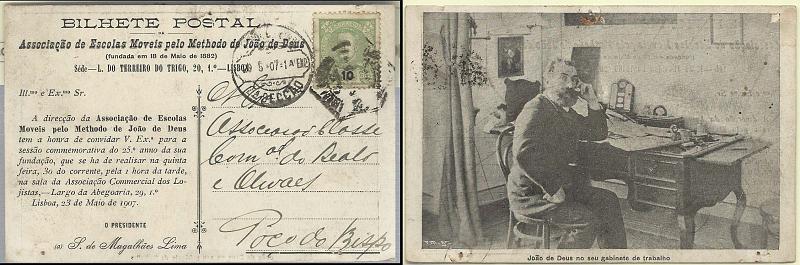 BILHETE POSTAL
Associação de Escolas Moveis pelo Methodo de João de Deus
(fundada em 18 de Maio de 1882)
Séde—L. DO TERREIRO DO TRIGO, 20, 1.º—LISBOA
Ill.mo e Ex.mo Sr.
A direcção da Associação de Escolas
Moveis pelo Methodo de João de Deus
tem a honra de convidar V. Ex.ª para a
sessão commemorativa do 25.º anno da sua
fundação, que se ha de realisar na quinta
feira, 30 do corrente, pela 1 hora da tarde,
na sala da Associação Commercial dos Lo-
jistas,—Largo da Abegoaria, 29, 1.º
Lisboa, 23 de Maio de 1907.
O PRESIDENTE
(a) S. de Magalhães Lima
10
Classe
do Beato
e Olivaes
Poço do Bispo
João de Deus no seu gabinete de trabalho